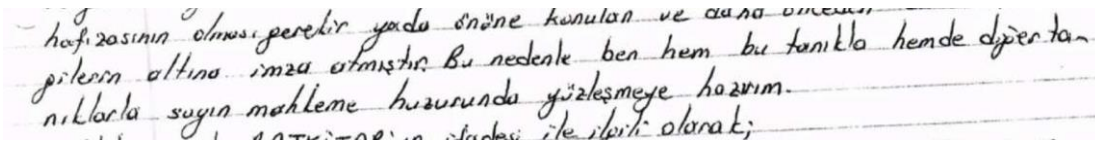 hafızasının olması gerekir yada önüne konulan ve daha önceden
altına imza atmıştır. Bu nedenle ben hem bu tanıkla hemde diğer ta-
nıklarla sayın mahkeme huzurunda yüzleşmeye hazırım.
ifadesi ile ilgili olarak;